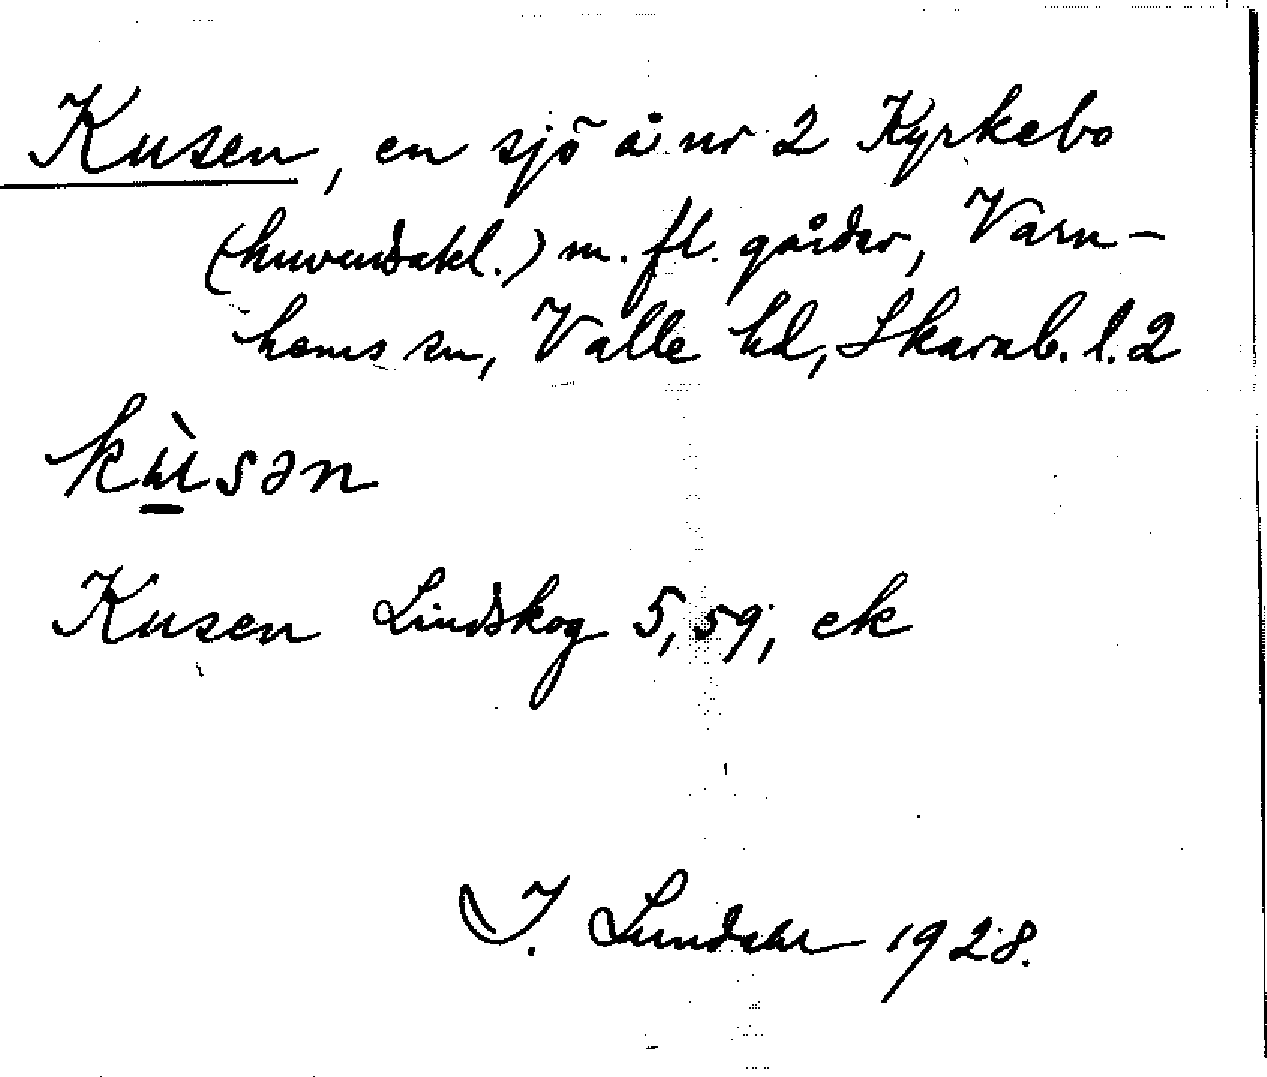 Kusen, en sjö å nr 2 Kyrkebo
(huvudsakl.) m. fl. gårdar, Varn-
hems sn, Valle hd, Skarab. l. 2
kùsən
Kusen Lindskog 5,59, ek
I. Lundahl 1928.